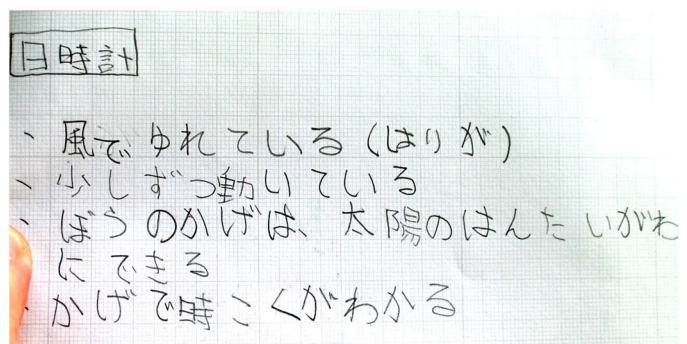 日時計
、風でゆれている(はりが)
、少しずつ動いている
、ぼうのかげは、太陽のはんたいがわ
にできる
、かげで時こくがわかる